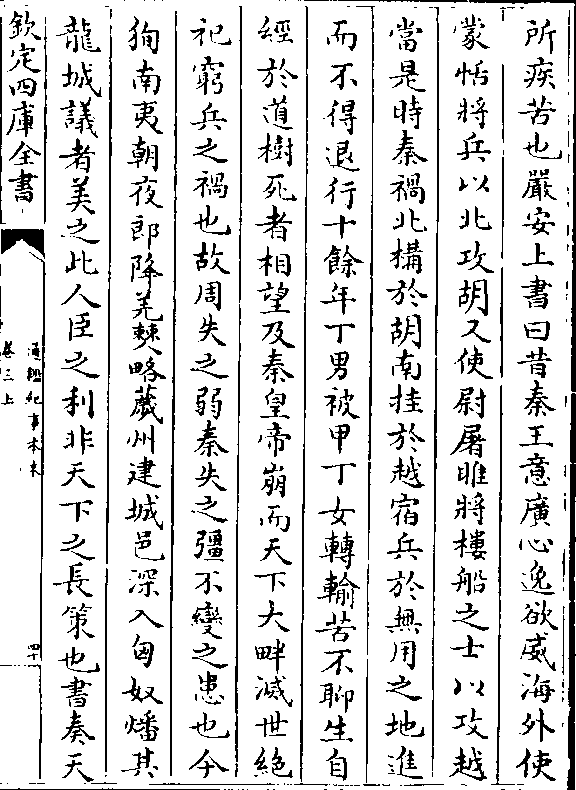 所疾苦也嚴安上書曰昔秦王意廣心逸欲威海外使
蒙恬將兵以北攻胡又使尉屠睢將樓船之士以攻越
當是時秦禍北構於胡南挂於越宿兵於無用之地進
而不得退行十餘年丁男被甲丁女轉輸苦不聊生自
經於道樹死者相望及秦皇帝崩而天下大畔滅世絕
祀窮兵之禍也故周失之弱秦失之彊不變之患也今
徇南夷朝夜郎降羌僰略薉州建城邑深入匈奴燔其
龍城議者美之此人臣之利非天下之長策也書奏天
欽定四庫全書
通鑑紀事本末
卷三上
四十